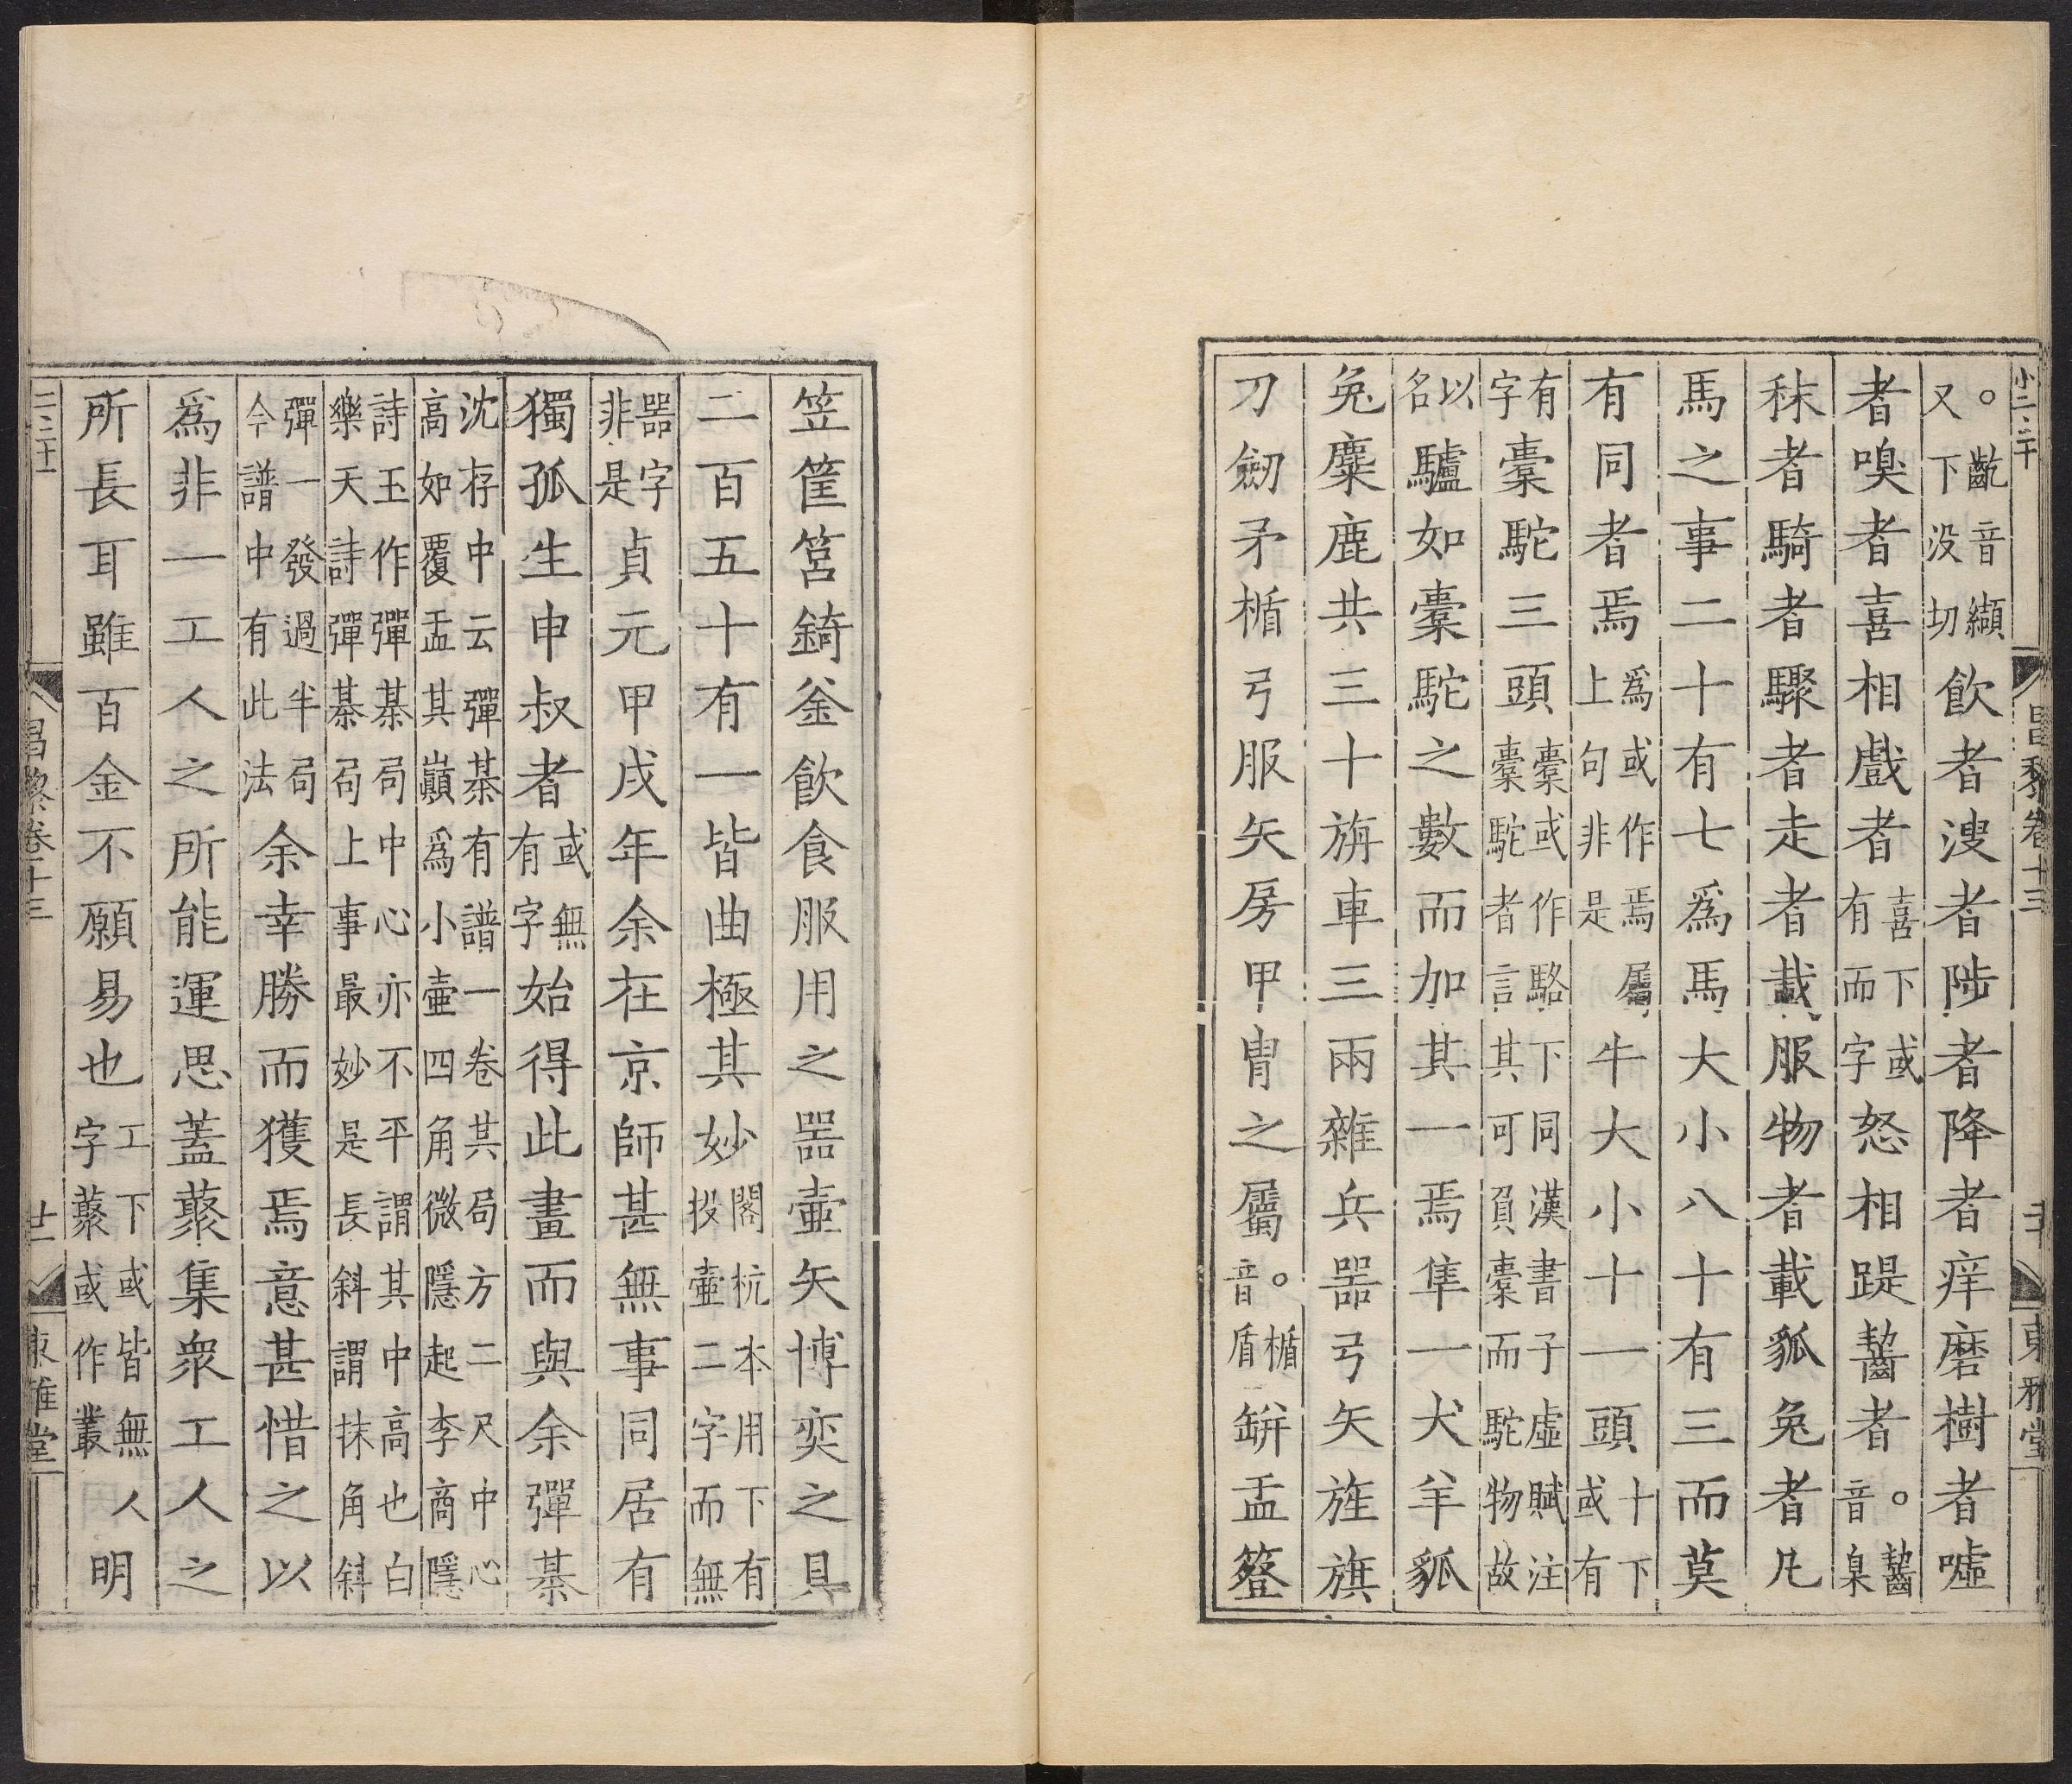 。齕音纈又下没切飲者溲者陟者降者痒磨樹者噓
者嗅者喜相戲者喜下或有而字怒相踶齧者。齧音臬
秣者騎者驟者走者載服物者載狐兔者凡
馬之事二十有七爲馬大小八十有三而莫
有同者焉爲或作焉屬上句非是牛大小十一頭十下或有
有字橐駝三頭橐或作駱下同漢書子虛賦注橐駝者言其可負橐而駝物故
以名驢如橐駝之數而加其一焉隼一犬羊狐
兔麋鹿共三十旃車三兩雜兵噐弓矢旌旗
刀劒矛楯弓服矢房甲冑之屬。楯音盾缾盂簦
笠筐筥錡釜飲食服用之噐壺矢博奕之具
二百五十有一皆曲極其妙閣杭本用下有投壺二字而無
噐字非是貞元甲戌年余在京師甚無事同居有
獨孤生申叔者或無有字始得此畫而與余彈棊
沈存中云彈棊有譜一卷其局方二尺中心高如覆盂其巔爲小壺四角微隱起李商隱
詩玉作彈棊局中心亦不平謂其中高也白樂天詩彈棊局上事最妙是長斜謂抹角斜
彈一發過半局今譜中有此法余幸勝而獲焉意甚惜之以
爲非一工人之所能運思蓋藂集衆工人之
所長耳雖百金不願易也工下或皆無人字藂或作叢明
昌黎卷十三
東雅堂
昌黎卷十三
廿一
東雅堂